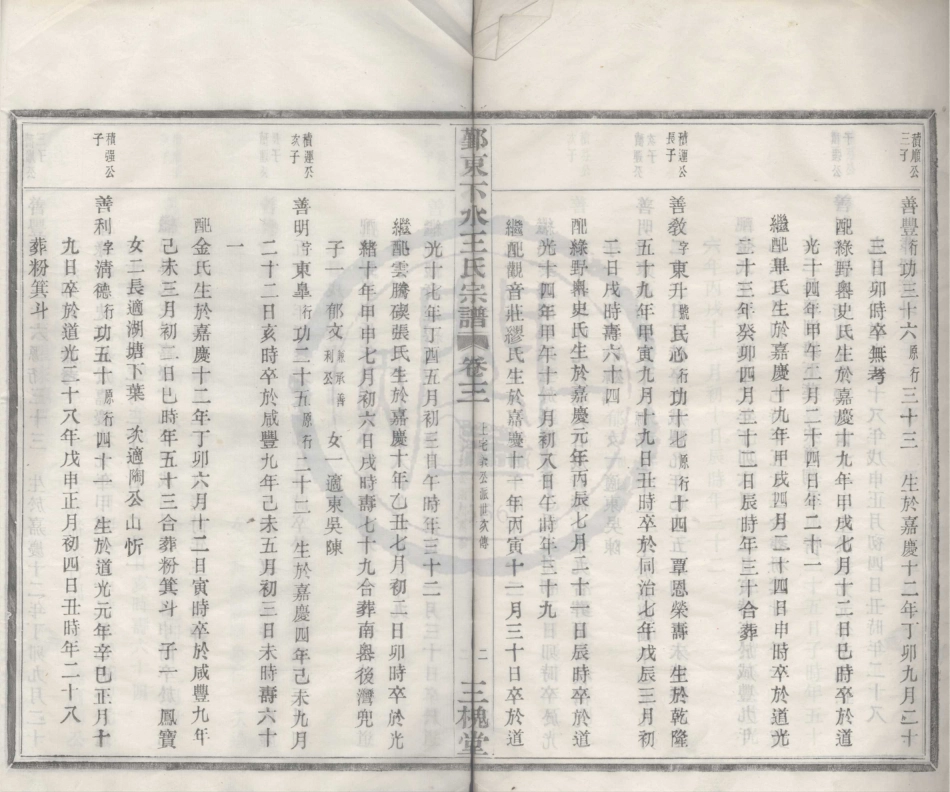 積順公三子
善豐行功三十六原行三十三 生於嘉慶十二年丁卯九月二十
三日卯時卒無考
配綠野嶴史氏生於嘉慶十九年甲戌七月十三日巳時卒於道
光十四年甲午二月二十四日年二十一
繼配畢氏生於嘉慶十九年甲戌四月二十四日申時卒於道光
二十三年癸卯四月二十二日辰時年三十合葬
積運公長子
善教字東升號民必行功十七原行十四 覃恩榮壽 生於乾隆
五十九年甲寅九月十九日丑時卒於同治七年戊辰三月初
二日戌時壽六十四
配綠野嶴史氏生於嘉慶元年丙辰七月二十一日辰時卒於道
光十四年甲午十一月初八日午時年三十九
繼配觀音莊繆氏生於嘉慶十一年丙寅十二月三十日卒於道
鄞東下水王氏宗譜 卷三 上宅象公派世次傳 二 三槐堂
光十七年丁酉五月初三日午時年三十二
繼配雲騰碶張氏生於嘉慶十年乙丑七月初一日卯時卒於光
緒十年甲申七月初六日戌時壽七十九合葬南嶴後灣兜
子一 郁文兼承善利公 女一適東吳陳
積運公次子
善明字東皐行功二十五原行二十二 生於嘉慶四年己未九月
二十二日亥時卒於咸豐九年己未五月初三日未時壽六十
一
配金氏生於嘉慶十二年丁卯六月十二日寅時卒於咸豐九年
己未三月初二日巳時年五十三合葬粉箕斗 子一 鳳寶
女二長適湖塘下葉 次適陶公山忻
積運公子
善利字清德行功五十原行四十一 生於道光元年辛巳正月十
九日卒於道光二十八年戊申正月初四日丑時年二十八
葬粉箕斗